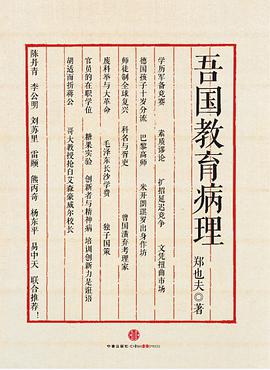 吾国教育病理
郑也夫◎著
学历军备竞赛 素质谬论 扩招延迟竞争 文凭扭曲市场
德国孩子十岁分流 巴黎高师 米开朗琪罗出身作坊
师徒制全球复兴 科名与胥吏 曾国藩弃考理家
废科举与大革命 毛泽东长沙学费 独子国策
官员的在职学位 糖果实验 创新者与精神病 培训创新力是诳语
胡适面折蒋公 哥大教授抢白艾森豪威尔校长
陈丹青 李公明 刘苏里 雷颐 熊丙奇 杨东平 易中天 联合推荐！
中信出版社·CHINA CITIC PRESS